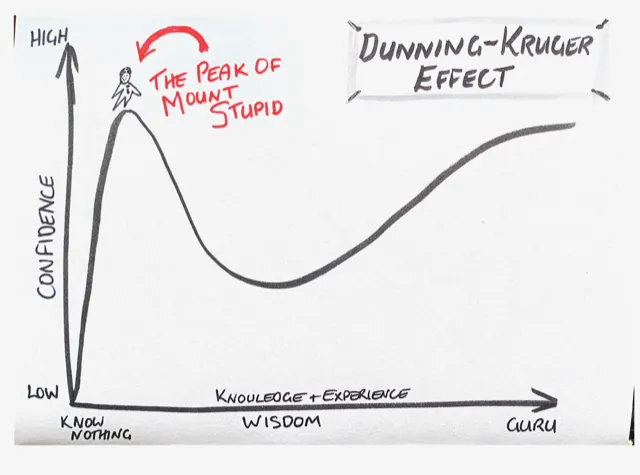 HIGH
DUNNING-KRUGER
EFFECT
THE PEAK OF
MOUNT
STUPID
CONFIDENCE
LOW
KNOWLEDGE + EXPERIENCE
KNOW
NOTHING
WISDOM
GURU